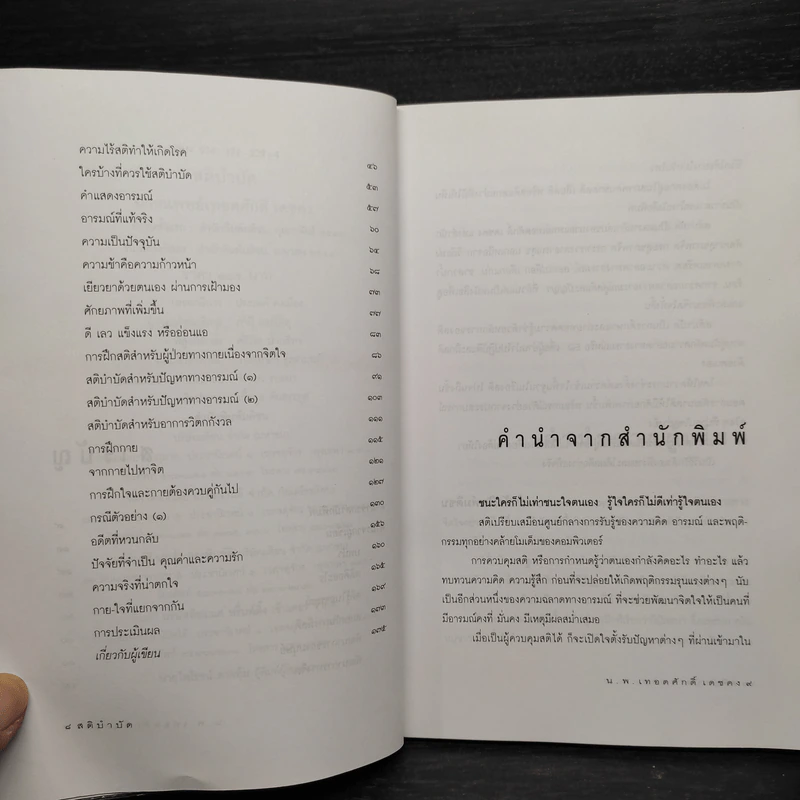 ความไร้สติทำให้เกิดโรค ๔๖
ใครบ้างที่ควรใช้สติบำบัด ๕๓
คำแสดงอารมณ์ ๕๗
อารมณ์ที่แท้จริง ๖๐
ความเป็นปัจจุบัน ๖๕
ความช้าคือความก้าวหน้า ๖๘
เยียวยาด้วยตนเอง ผ่านการเฝ้ามอง ๗๓
ศักยภาพที่เพิ่มขึ้น ๗๗
ดี เลว แข็งแรง หรืออ่อนแอ ๘๓
การฝึกสติสำหรับผู้ป่วยทางกายเนื่องจากจิตใจ ๘๖
สติบำบัดสำหรับปัญหาทางอารมณ์ (๑) ๙๖
สติบำบัดสำหรับปัญหาทางอารมณ์ (๒) ๑๐๓
สติบำบัดสำหรับอาการวิตกกังวล ๑๑๑
การฝึกกาย ๑๑๕
จากกายไปหาจิต ๑๒๑
การฝึกใจและกายต้องควบคู่กันไป ๑๒๗
กรณีตัวอย่าง (๑) ๑๓๐
อดีตที่หวนกลับ ๑๕๖
ปัจจัยที่จำเป็น คุณค่าและความรัก ๑๖๐
ความจริงที่น่าตกใจ ๑๖๕
กาย-ใจที่แยกจากกัน ๑๖๙
การประเมินผล ๑๗๓
เกี่ยวกับผู้เขียน ๑๗๕
๘ สติบำบัด
คำนำจากสำนักพิมพ์
ชนะใครก็ไม่เท่าชนะใจตนเอง รู้ใจใครก็ไม่ดีเท่ารู้ใจตนเอง
สติเปรียบเสมือนศูนย์กลางการรับรู้ของความคิด อารมณ์ และพฤติ-
กรรมทุกอย่างคล้ายโมเด็มของคอมพิวเตอร์
การควบคุมสติ หรือการกำหนดรู้ว่าตนเองกำลังคิดอะไร ทำอะไร แล้ว
ทบทวนความคิด ความรู้สึก ก่อนที่จะปล่อยให้เกิดพฤติกรรมรุนแรงต่างๆ นับ
เป็นอีกส่วนหนึ่งของความฉลาดทางอารมณ์ ที่จะช่วยพัฒนาจิตใจให้เป็นคนที่
มีอารมณ์คงที่ มั่นคง มีเหตุมีผลสม่ำเสมอ
เมื่อเป็นผู้ควบคุมสติได้ ก็จะเปิดใจตั้งรับปัญหาต่างๆ ที่ผ่านเข้ามาใน
น.พ.เทอดศักดิ์ เดชคง ๙